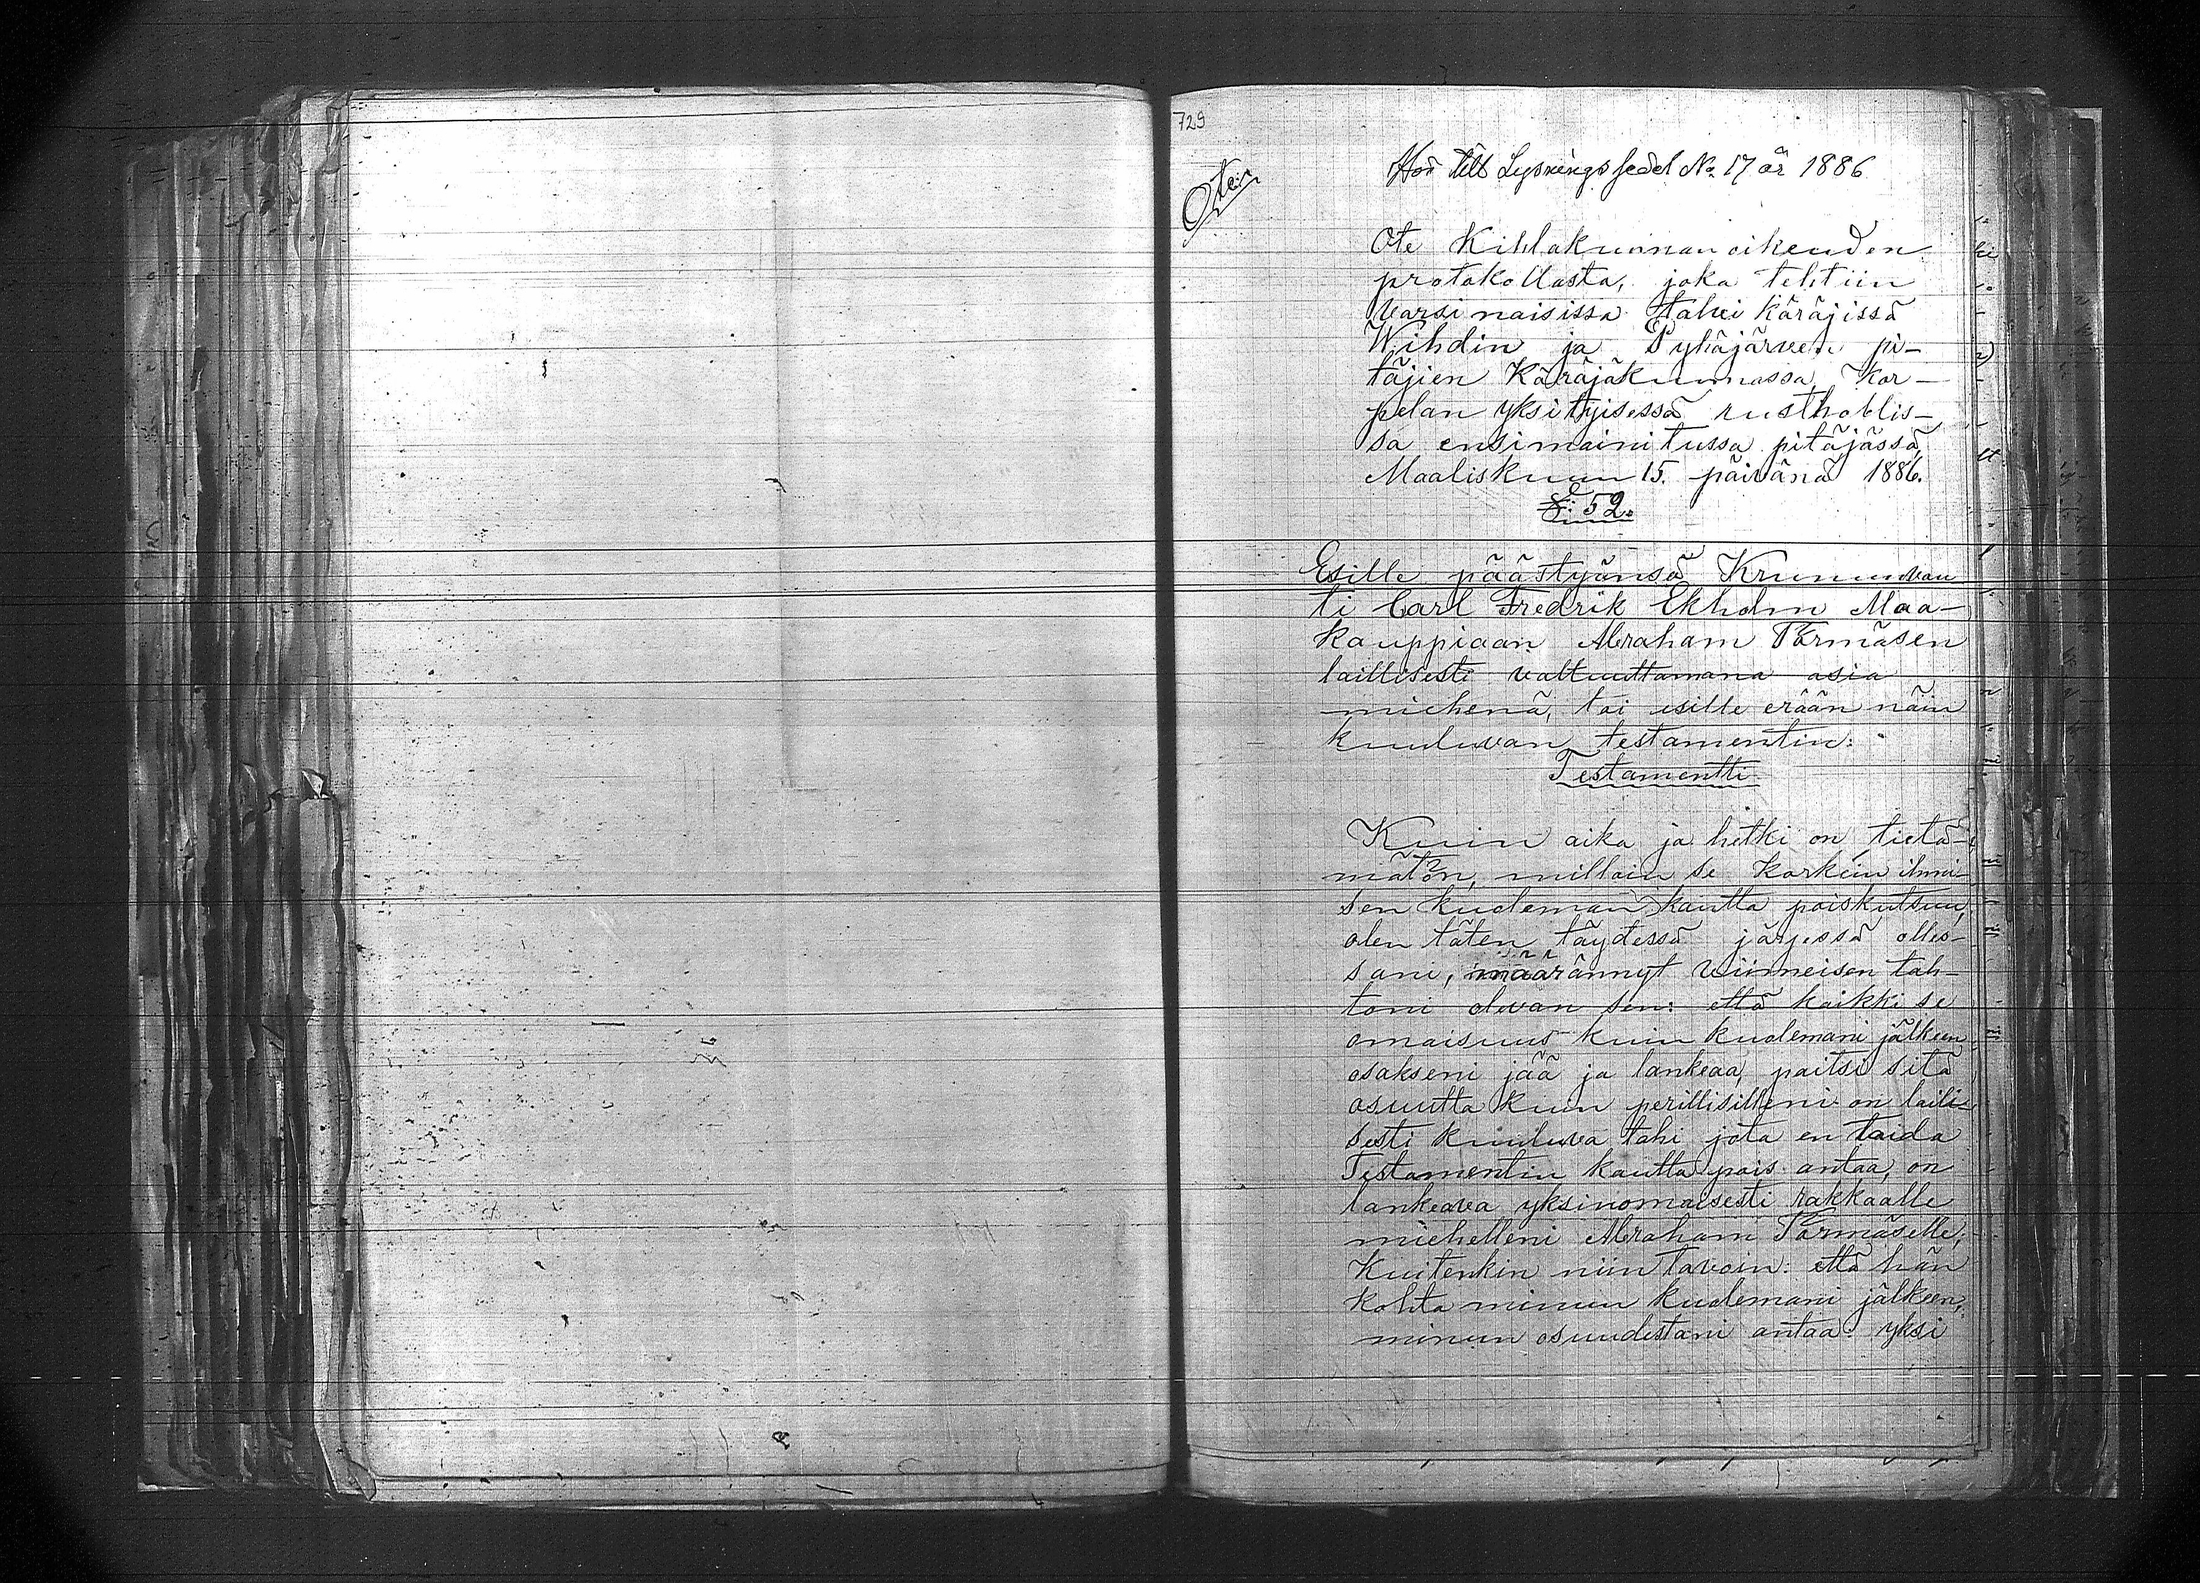 729
Hör till Lysningssedel No. 17 år 1886
Ote
Ote Kihlakunnan oikeuden
protokollasta, joka tehtiin
varsinaisissa talvi käräjissä
Wihdin ja Pyhäjärven pi-
täjien Käräjäkunnassa, Kor-
pelan yksityisessä rusthollis-
sa ensimainitussa pitäjässä,
Maaliskuun 15. päivänä 1886.
§: 52.
Esille päästyänsä Kruununvou
ti Carl Fredrik Ekholm Maa-
kauppiaan Abraham Törmäsen
laillisesti valtuuttamana asia
miehenä, toi esille erään näin
kuuluvan testamentin:
Testamentti
Kuin aika ja hetki on tietä-
mätön, milloin se Korkein ihmi-
sen kuoleman kautta poiskutsuu,
olen täten täydessä järjessä olles-
sani, määrännyt viimeisen tah-
toni olevan sen: että kaikki se
omaisuus kuin kuolemani jälkeen
osakseni jää ja lankeaa, paitsi sitä
osuutta kuin perillisilleni on laili-
sesti kuuluva tahi jota en taida
Testamentin kautta pois antaa, on
lankeava yksinomaisesti rakkaalle
miehelleni Abraham Törmäselle,
Kuitenkin niin tavoin: että hän
kohta minun kuolemani jälkeen,
minun osuudestani antaa yksi